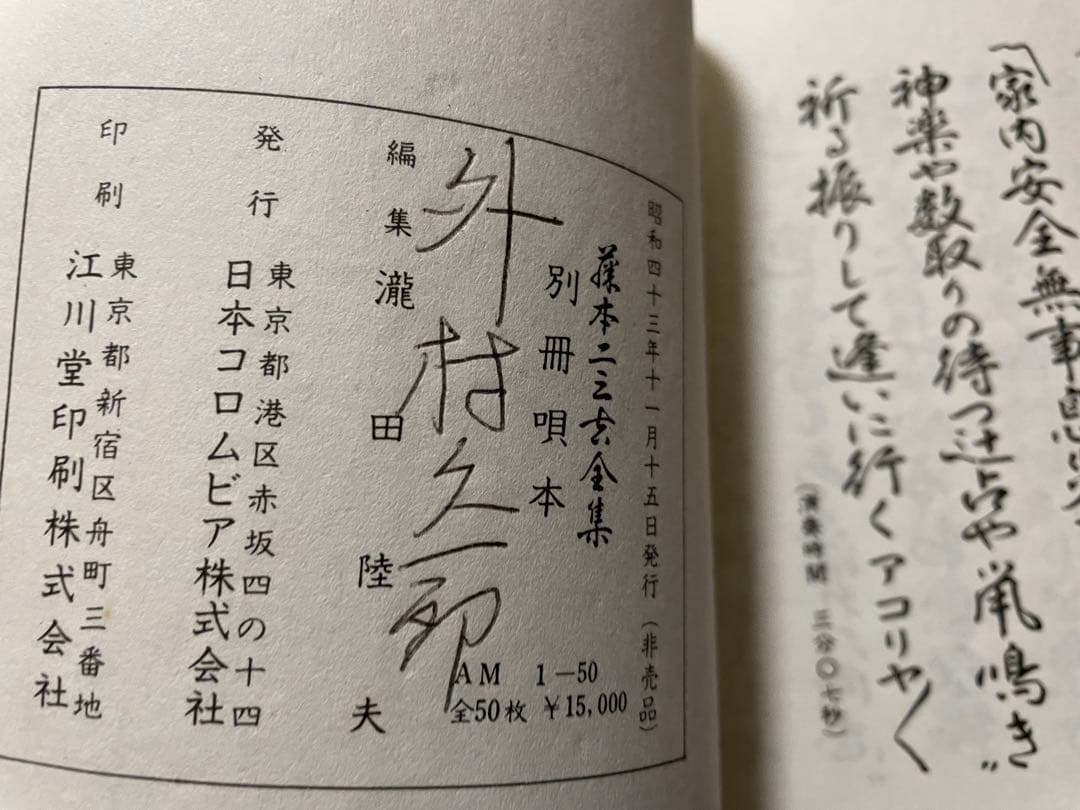 〽家内安全無事
神楽や数取りの待つ辻占や鼠鳴き〃
祈る振りして逢いに行くアコリャ〳〵
(演奏時間 三分〇七秒)
昭和四十三年十一月十五日発行(非売品)
藤本二三吉全集
別冊唄本
AM 1−50
全50枚 ¥15,000
外村久一郎
編集 瀧田陸夫
発行 東京都港区赤坂四の十四
日本コロムビア株式会社
印刷 東京都新宿区舟町三番地
江川堂印刷株式会社